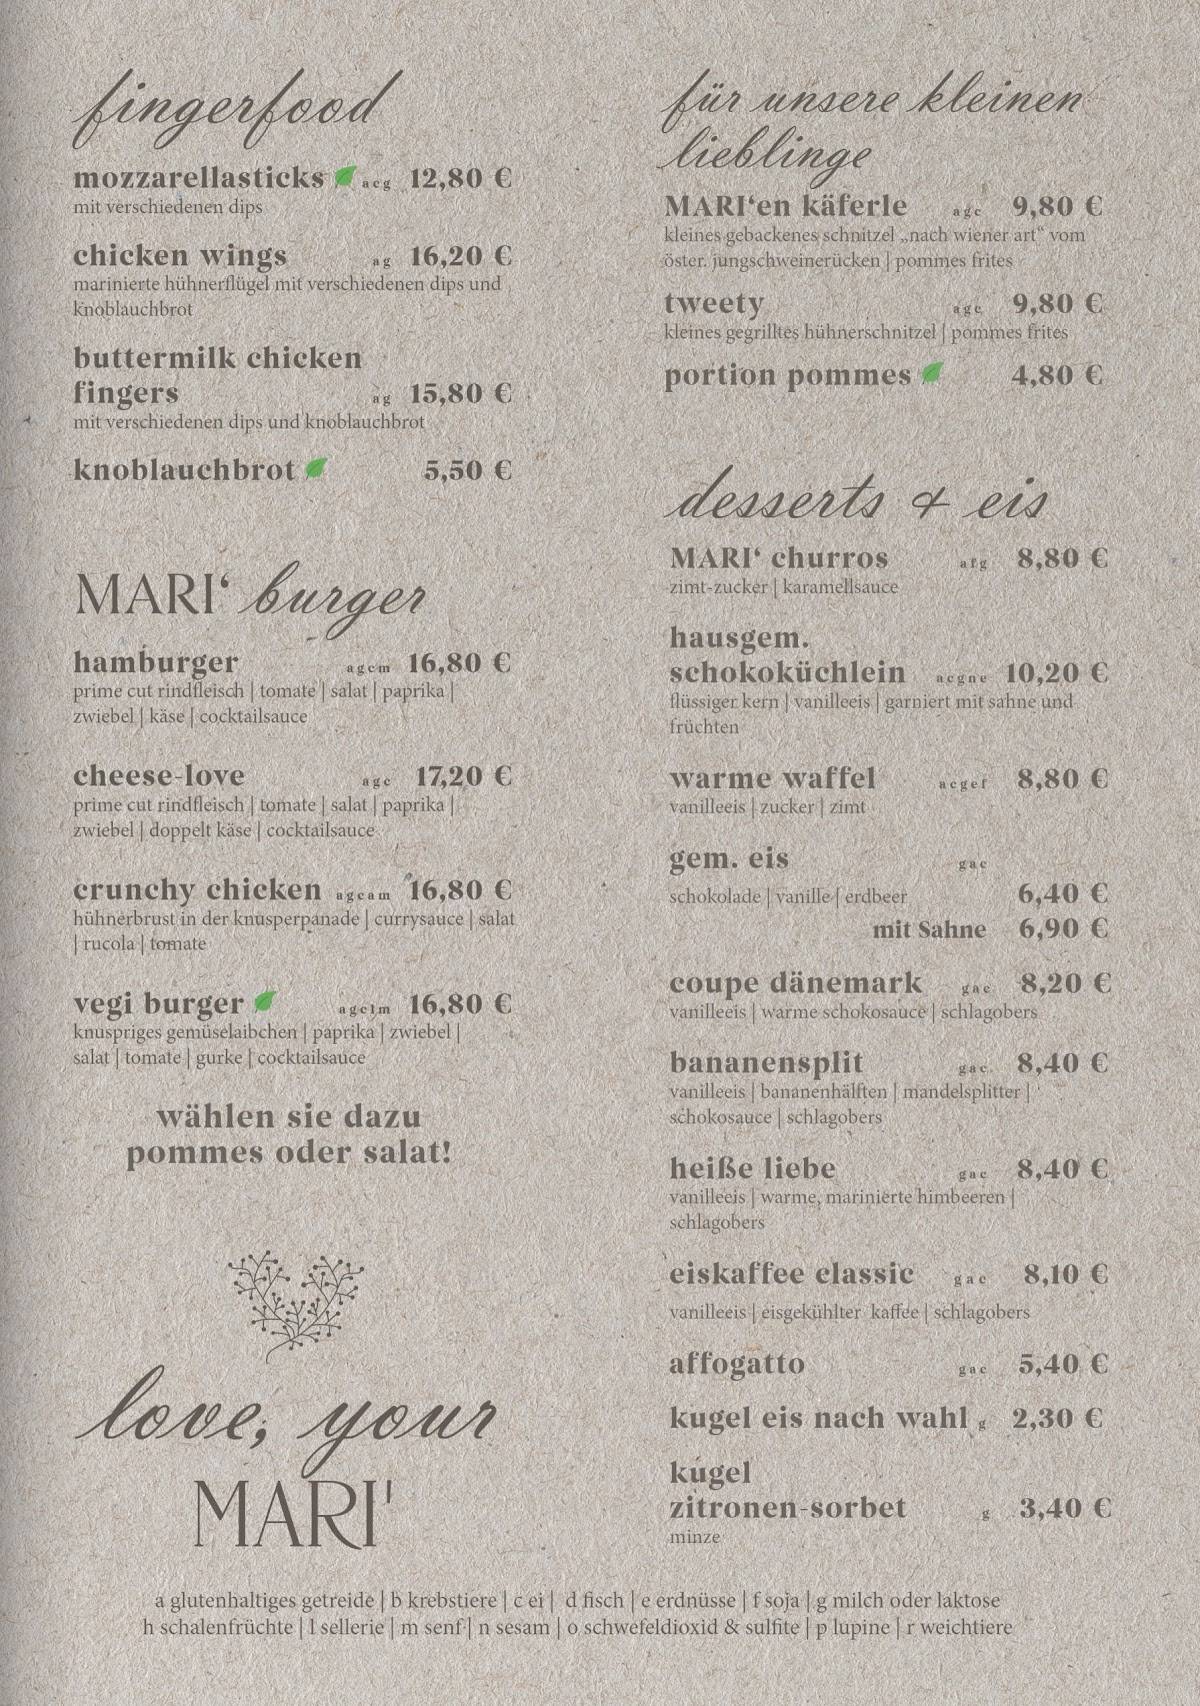 fingerfood
mozzarellasticks acg 12,80 €
mit verschiedenen dips
chicken wings ag 16,20 €
marinierte hühnerflügel mit verschiedenen dips und
knoblauchbrot
buttermilk chicken
fingers ag 15,80 €
mit verschiedenen dips und knoblauchbrot
knoblauchbrot 5,50 €
MARI‘ burger
hamburger agcm 16,80 €
prime cut rindfleisch | tomate | salat | paprika |
zwiebel | käse | cocktailsauce
cheese-love agc 17,20 €
prime cut rindfleisch | tomate | salat | paprika |
zwiebel | doppelt käse | cocktailsauce
crunchy chicken agcam 16,80 €
hühnerbrust in der knusperpanade | currysauce | salat
| rucola | tomate
vegi burger agclm 16,80 €
knuspriges gemüselaibchen | paprika | zwiebel |
salat | tomate | gurke | cocktailsauce
wählen sie dazu
pommes oder salat!
love, your
MARI'
für unsere kleinen
lieblinge
MARI‘en käferle agc 9,80 €
kleines gebackenes schnitzel „nach wiener art“ vom
öster. jungschweinerücken | pommes frites
tweety agc 9,80 €
kleines gegrilltes hühnerschnitzel | pommes frites
portion pommes 4,80 €
desserts & eis
MARI‘ churros afg 8,80 €
zimt-zucker | karamellsauce
hausgem.
schokoküchlein acgne 10,20 €
flüssiger kern | vanilleeis | garniert mit sahne und
früchten
warme waffel acgef 8,80 €
vanilleeis | zucker | zimt
gem. eis gac
schokolade | vanille | erdbeer 6,40 €
mit Sahne 6,90 €
coupe dänemark gac 8,20 €
vanilleeis | warme schokosauce | schlagobers
bananensplit gac 8,40 €
vanilleeis | bananenhälften | mandelsplitter |
schokosauce | schlagobers
heiße liebe gac 8,40 €
vanilleeis | warme, marinierte himbeeren |
schlagobers
eiskaffee classic gac 8,10 €
vanilleeis | eisgekühlter kaffee | schlagobers
affogatto gac 5,40 €
kugel eis nach wahl g 2,30 €
kugel
zitronen-sorbet g 3,40 €
minze
a glutenhaltiges getreide | b krebstiere | c ei | d fisch | e erdnüsse | f soja | g milch oder laktose
h schalenfrüchte | l sellerie | m senf | n sesam | o schwefeldioxid & sulfite | p lupine | r weichtiere